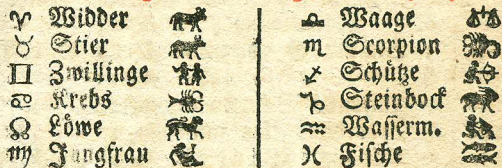 ♈ Widder
♉ Stier
♊ Zwillinge
♋ Krebs
♌ Löwe
♍ Jungfrau
♎ Waage
♏ Scorpion
♐ Schütze
♑ Steinbock
♒ Wasserm.
♓ Fische